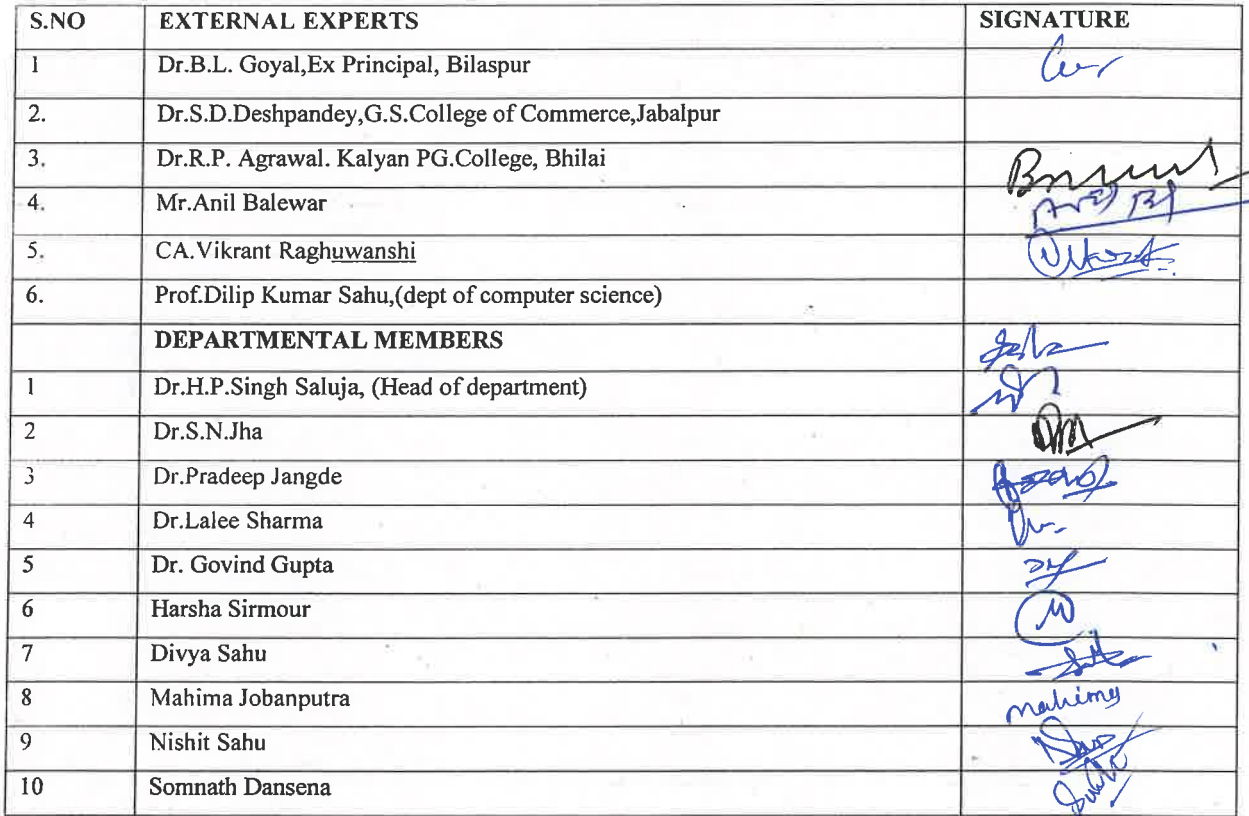 S.NO EXTERNAL EXPERTS SIGNATURE
1 Dr.B.L. Goyal,Ex Principal, Bilaspur
2. Dr.S.D.Deshpandey,G.S.College of Commerce,Jabalpur
3. Dr.R.P. Agrawal. Kalyan PG.College, Bhilai
4. Mr.Anil Balewar
5. CA.Vikrant Raghuwanshi
6. Prof.Dilip Kumar Sahu,(dept of computer science)
DEPARTMENTAL MEMBERS
1 Dr.H.P.Singh Saluja, (Head of department)
2 Dr.S.N.Jha
3 Dr.Pradeep Jangde
4 Dr.Lalee Sharma
5 Dr. Govind Gupta
6 Harsha Sirmour
7 Divya Sahu
8 Mahima Jobanputra mahima
9 Nishit Sahu
10 Somnath Dansena